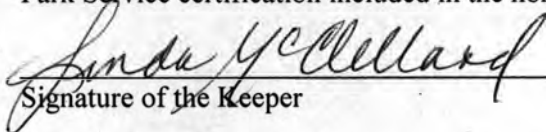 Park Service certification included in the no
Linda McClelland
Signature of the Keeper